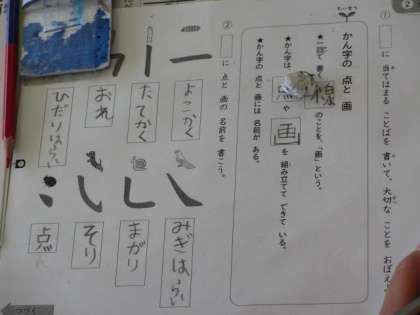 ②
① □に 当てはまる ことばを 書いて、大切な ことを おぼえ
たいせつ
かん字の 点と 画
書く
のことを、「画」という。
★かん字は、点や画を 組み立てて できて いる。
★かん字の 点と 画には 名前が ある。
② □に 点と 画の 名前を 書こう。
よこかく
たてかく
おれ
ひだりはらい
みぎはらい
まがり
そり
点
つづく